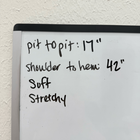 pit to pit: 17"
shoulder to hem: 42"
Soft
Stretchy